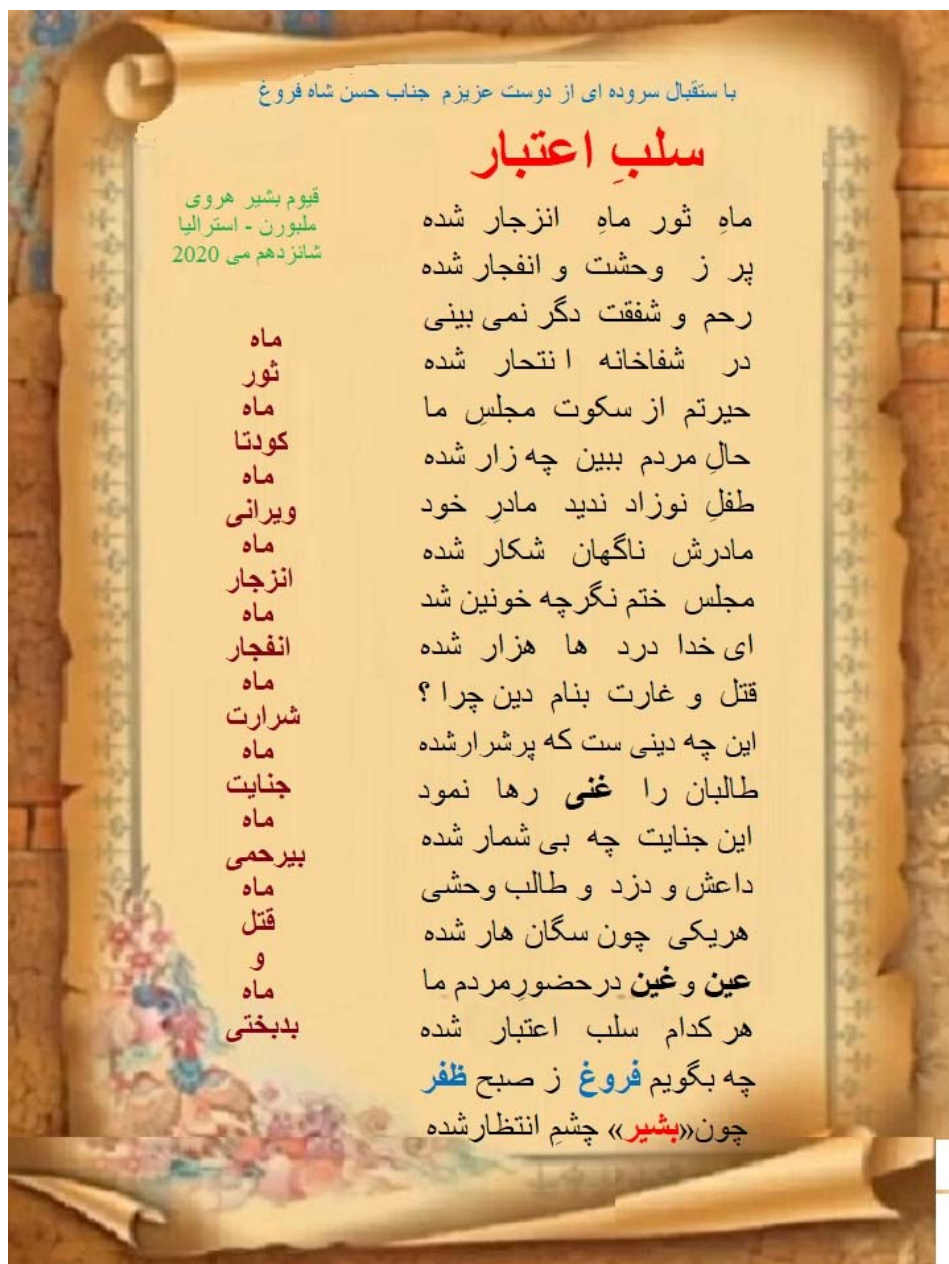 با ستقبال سروده ای از دوست عزیزم جناب حسن شاه فروغ
سلبِ اعتبار
ماهِ ثور ماهِ انزجار شده
پر ز وحشت و انفجار شده
رحم و شفقت دگر نمی بینی
در شفاخانه ا نتحار شده
حیرتم از سکوت مجلسِ ما
حالِ مردم ببین چه زار شده
طفلِ نوزاد ندید مادرِ خود
مادرش ناگهان شکار شده
مجلس ختم نگرچه خونین شد
ای خدا درد ها هزار شده
قتل و غارت بنام دین چرا ؟
این چه دینی ست که پرشرارشده
طالبان را غنی رها نمود
این جنایت چه بی شمار شده
داعش و دزد و طالب وحشی
هریکی چون سگان هار شده
عین و غین درحضورِمردم ما
هر کدام سلب اعتبار شده
چه بگویم فروغ ز صبح ظفر
چون«بشیر» چشمِ انتظارشده
قیوم بشیر هروی
ملبورن - استرالیا
شانزدهم می 2020
ماه
ثور
ماه
کودتا
ماه
ویرانی
ماه
انزجار
ماه
انفجار
ماه
شرارت
ماه
جنایت
ماه
بیرحمی
ماه
قتل
و
ماه
بدبختی